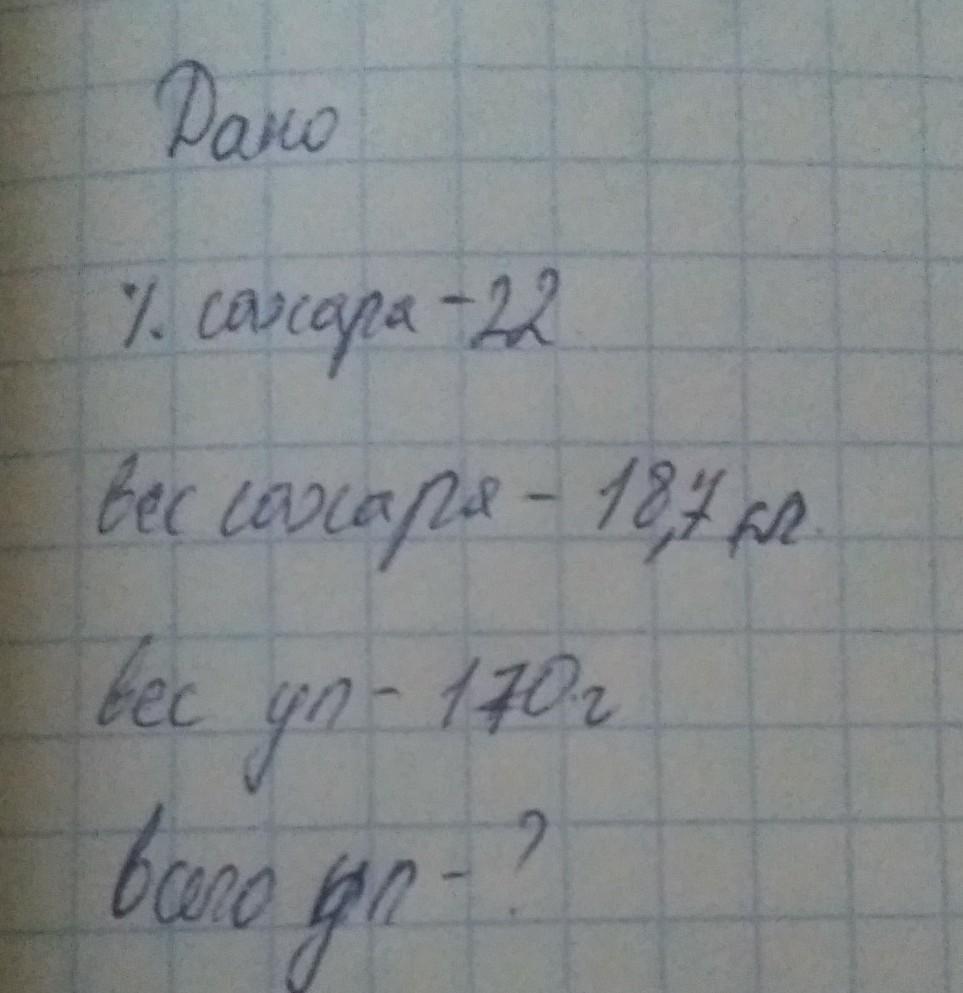 Дано
% сахара - 22
вес сахара - 18,7 кг
вес уп - 170 г
всего уп - ?